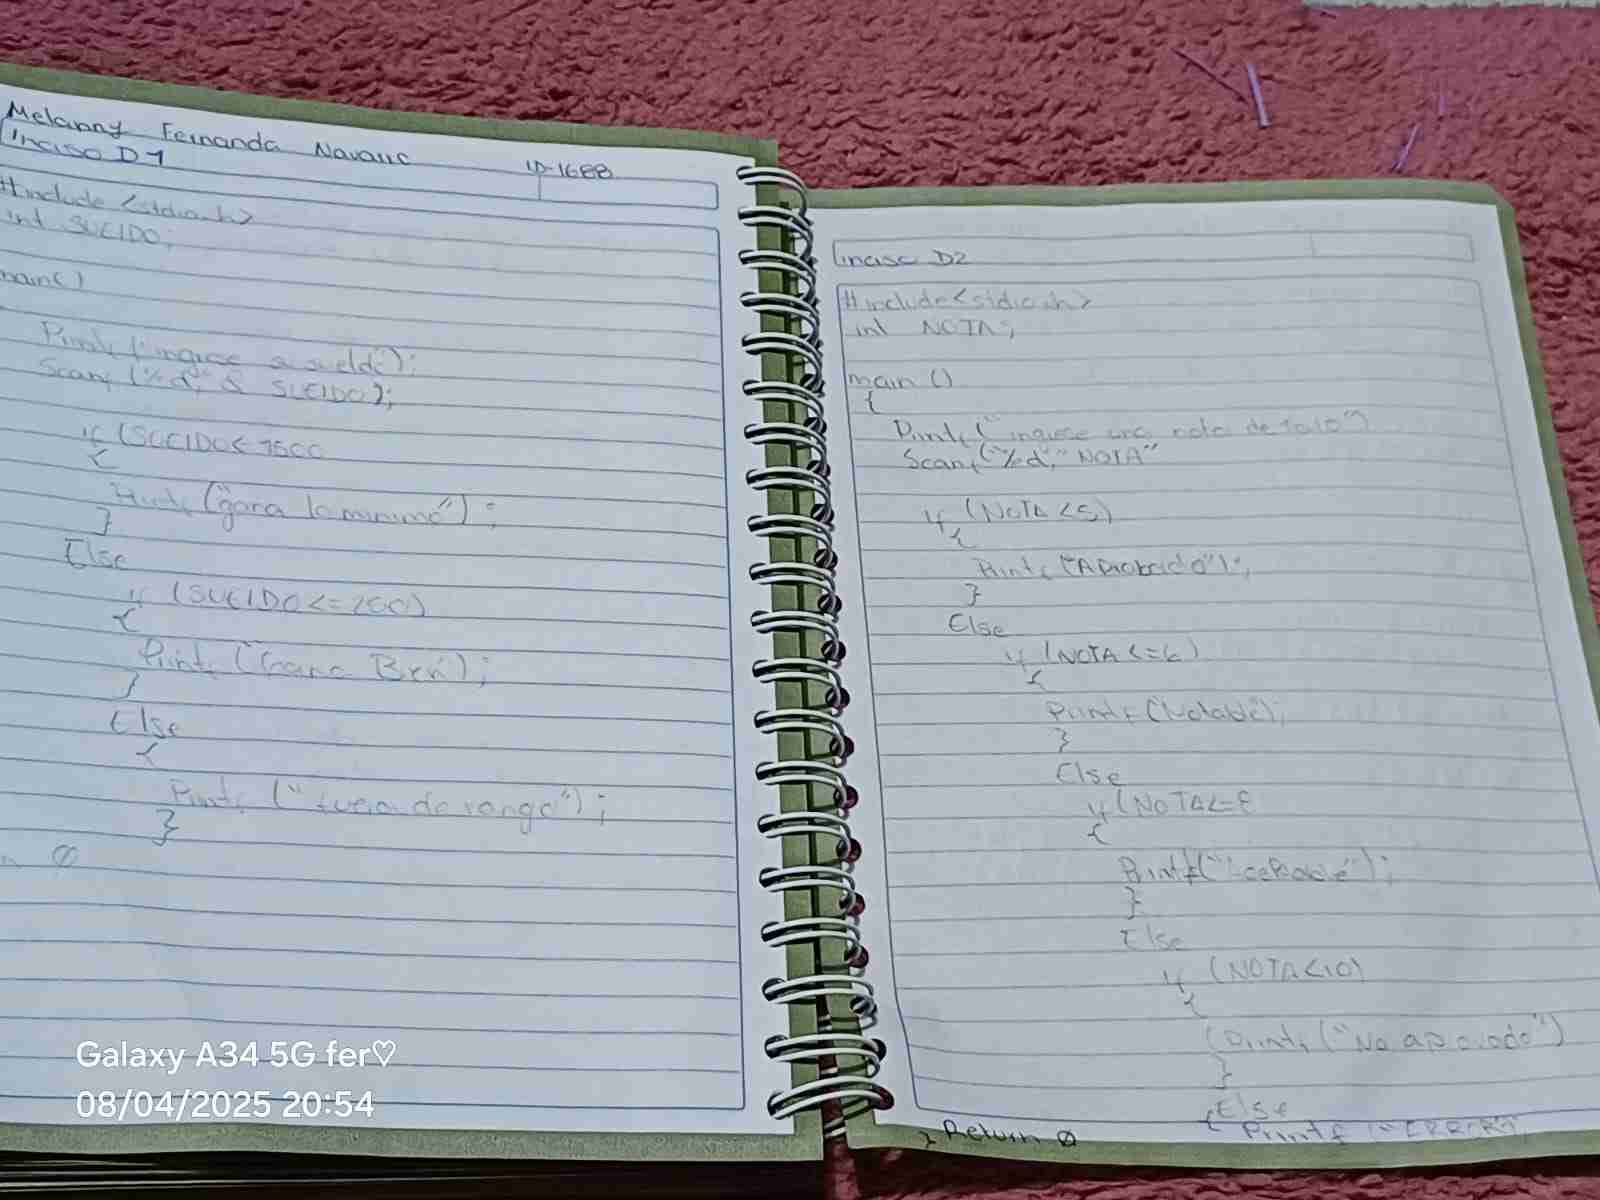 Melanny Fernanda Navarro
ID-1688
Inciso D1
#include <stdio.h>
int SUELDO;
main()
Printf ("ingrese su sueldo");
Scanf ("%d," & SUELDO);
if (SUELDO< 1500
{
Printf ("gana lo minimo");
}
Else
if (SUELDO<=200)
{
Printf ("Gana Bien");
}
Else
{
Printf ("fuera de rango");
}
0
Inciso D2
#include<stdio.h>
int NOTA;
main ()
{
Printf ("ingrese una nota de 1a10")
Scanf ("%d," NOTA"
if (NOTA <5)
{
Printf ("Aprobado");
}
Else
if (NOTA <=6)
{
Printf ("Notable");
}
Else
if (NOTA<=8
{
Printf ("
");
}
Else
if (NOTA<10)
{
(Printf ("No aprovado")
}
Else
{ Printf ("ERROR"
} Return 0
Galaxy A34 5G fer♡
08/04/2025 20:54